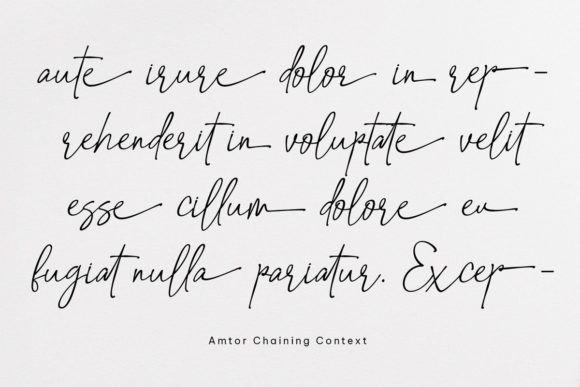 aute irure dolor in rep-
rehenderit in voluptate velit
esse cillum dolore eu
fugiat nulla pariatur. Excep-
Amtor Chaining Context